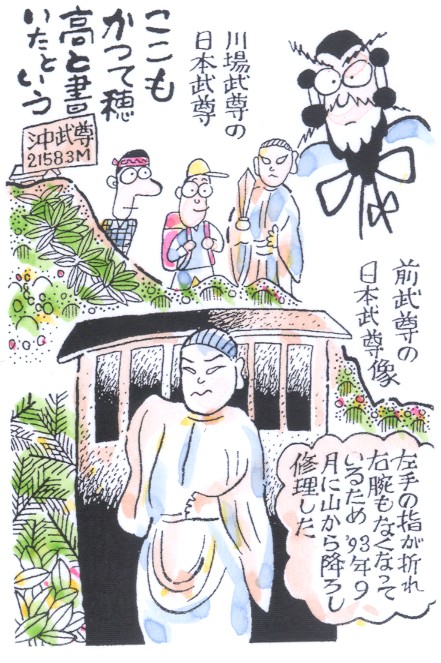 ここも
かつて穂
高と書
いたという
川場武尊の
日本武尊
沖武尊
21583M
前武尊の
日本武尊像
左手の指が折れ
右腕もなくなって
いるため'93年9
月に山から降ろし
修理した